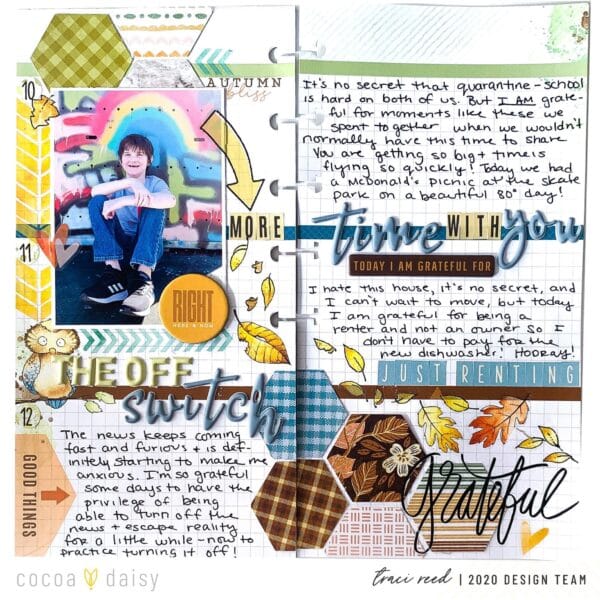 AUTUMN
bliss
10
MORE
11
RIGHT
HERE 'N NOW
THE OFF
switch
12
The news keeps coming
fast and furious + is def-
initely starting to make me
anxious. I'm so grateful
some days to have the
privilege of being
able to turn off the
news + escape reality
for a little while - now to
practice turning it off!
GOOD THINGS
It's no secret that quarantine-school
is hard on both of us. But I AM grate-
ful for moments like these we
spent together when we wouldn't
normally have this time to share
You are getting so big + time is
flying so quickly! Today we had
a McDonald's picnic at the skate
park on a beautiful 80° day!
time WITH you
TODAY I AM GRATEFUL FOR
I hate this house, it's no secret, and
I can't wait to move, but today
I am grateful for being a
renter and not an owner so I
don't have to pay for the
new dishwasher! HOORAY!
JUST RENTING
grateful
cocoa daisy
traci reed | 2020 DESIGN TEAM